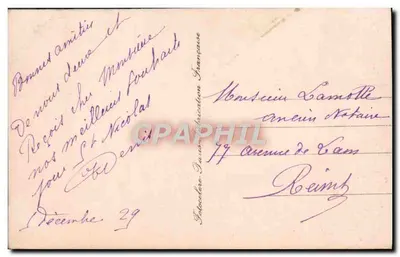 Bonnes amitiés
De nous deux et
Reçois cher Monsieur
nos meilleurs souhaits
pour St Nicolas
Denis
Décembre 29
Monsieur Lamotte
ancien Notaire
77 avenue de Laon
Reims